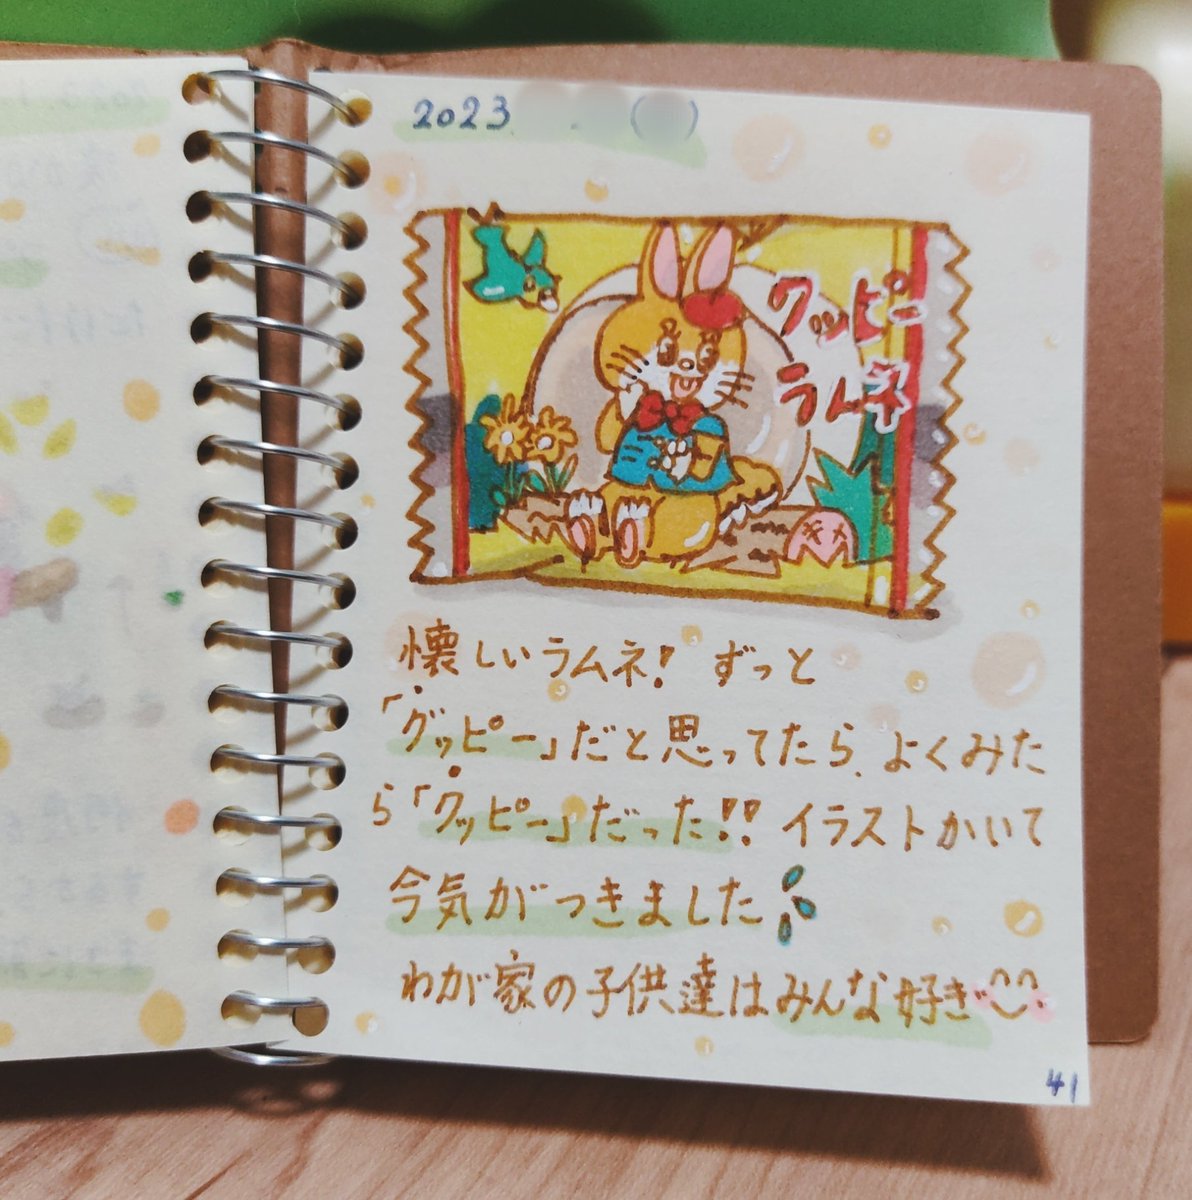 2023 ( )
クッピー
ラムネ
懐しいラムネ! ずっと
「グッピー」だと思ってたら、よくみた
ら「クッピー」だった!! イラストかいて
今気がつきました
わが家の子供達はみんな好き
41